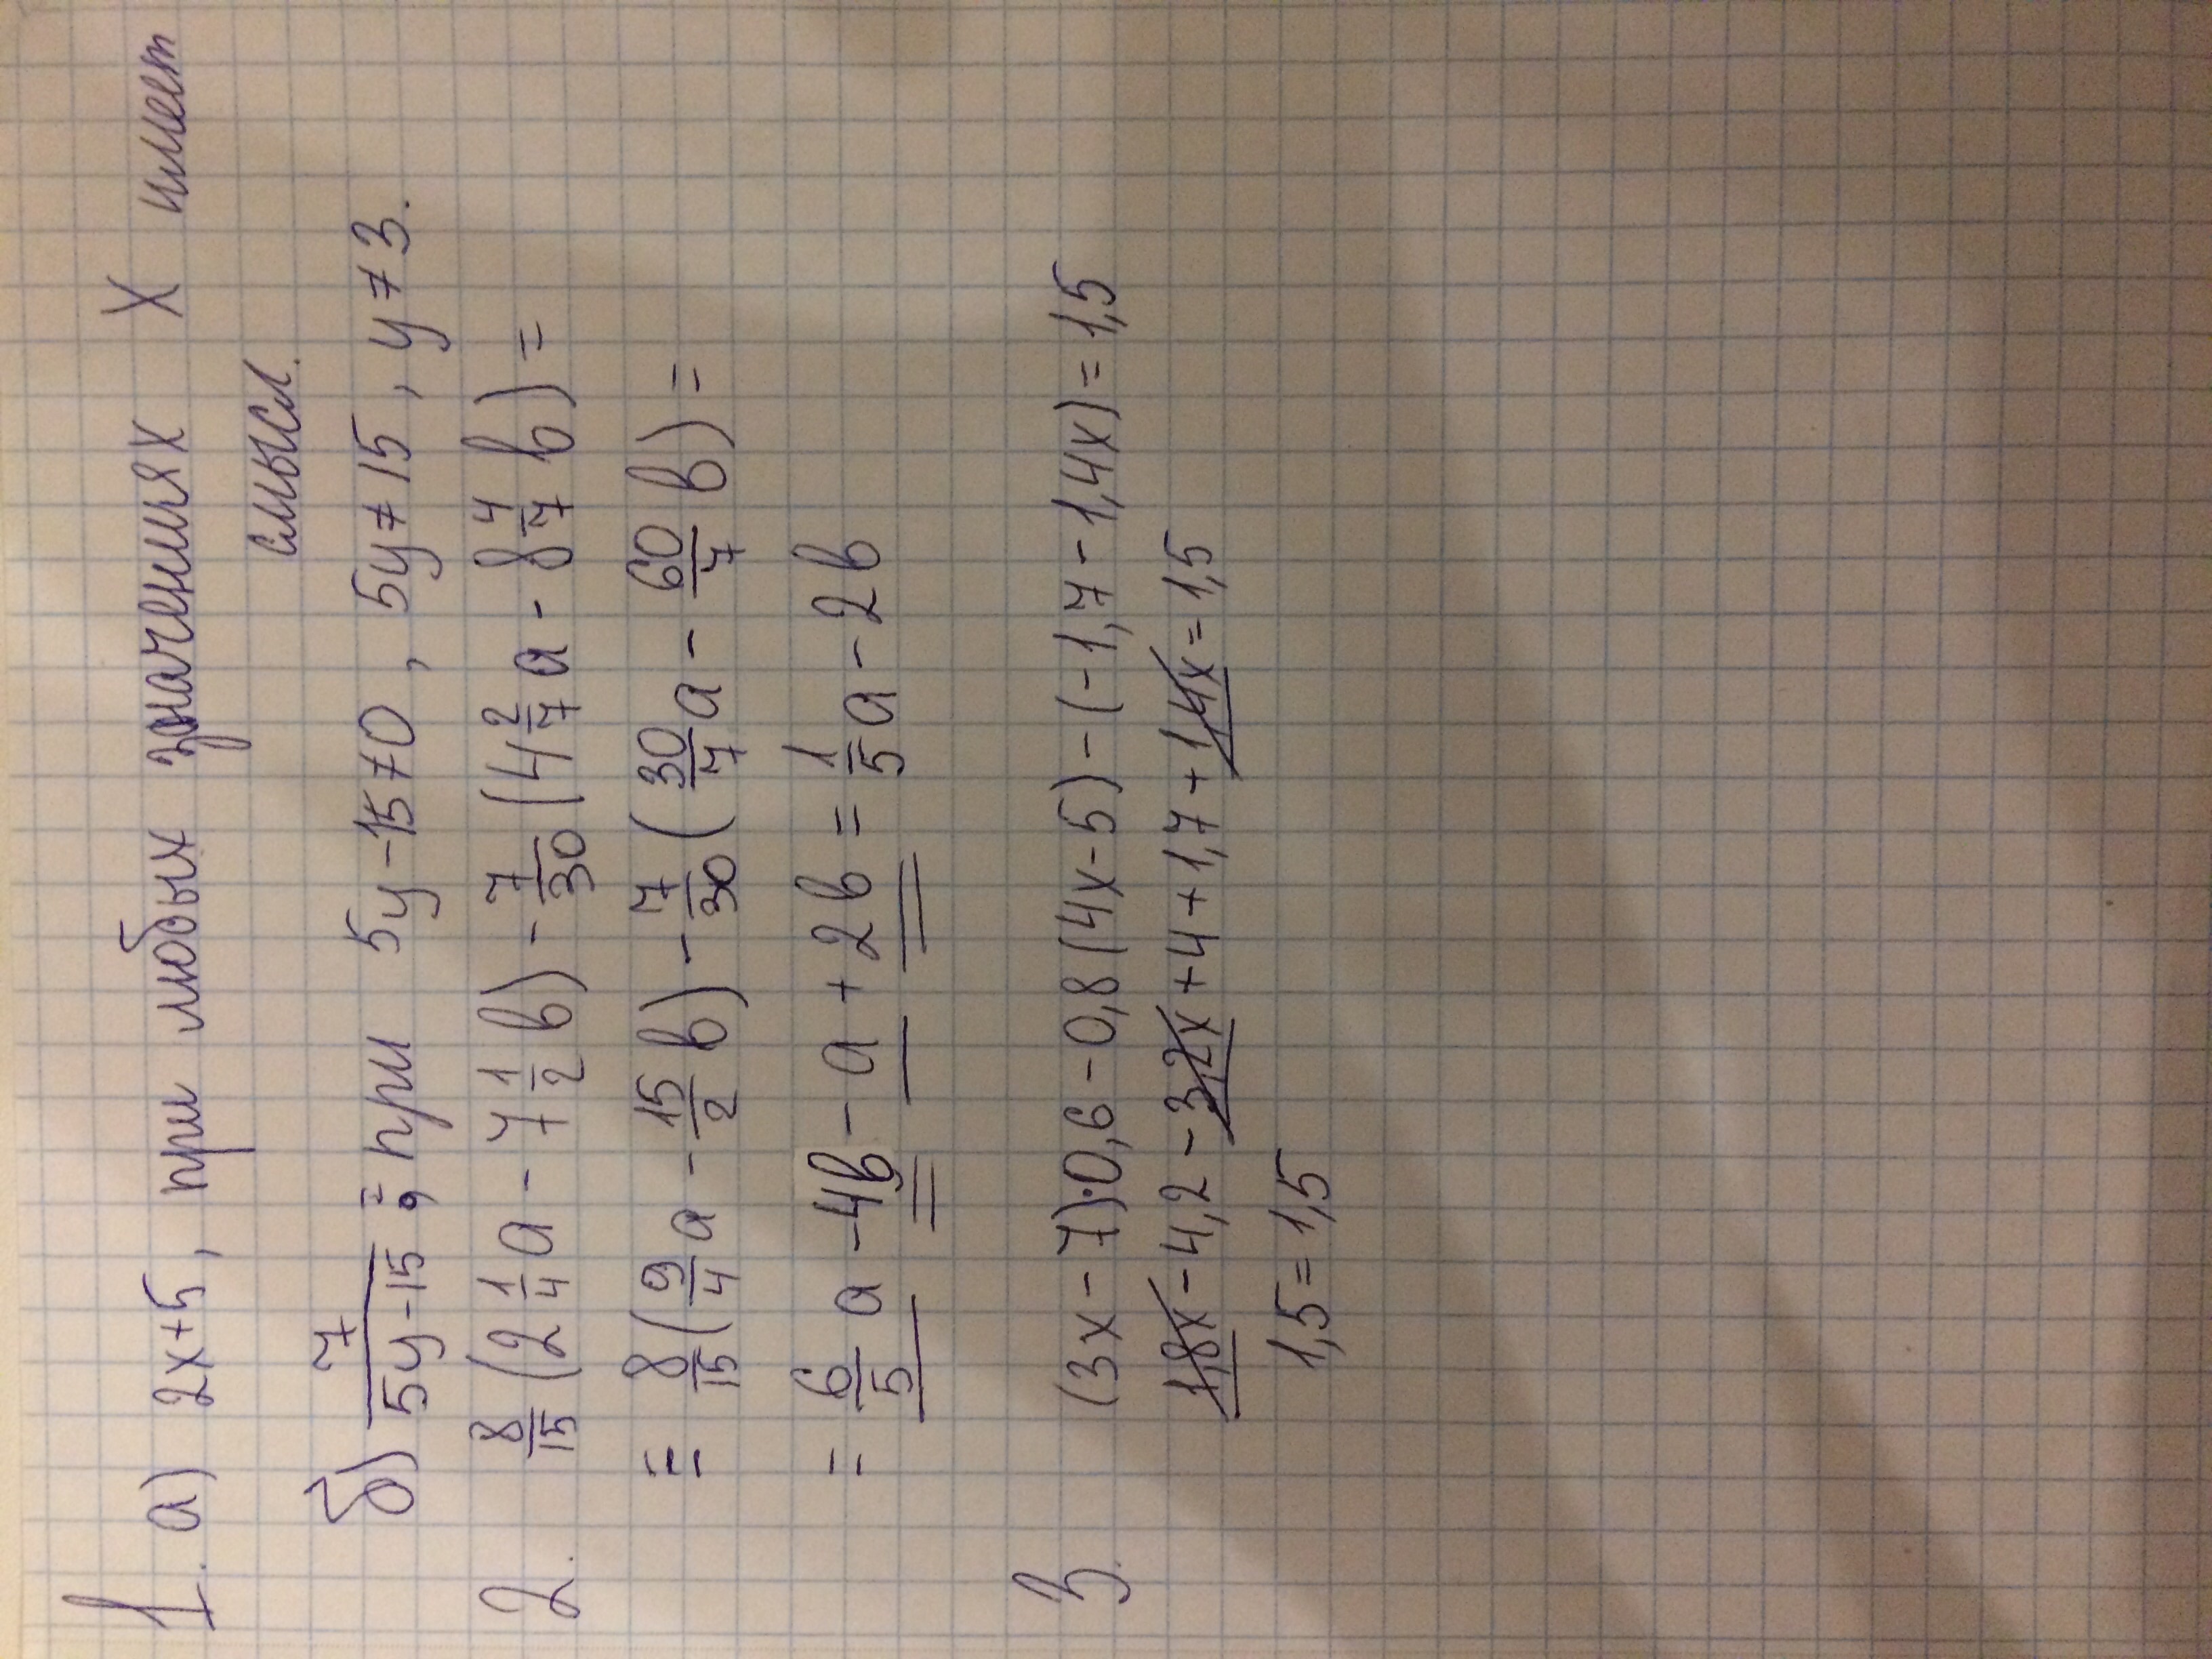 1. а) 2x+5, при любых значениях X имеет
смысл.
б) 7/(5y-15); при 5y-15≠0, 5y≠15, y≠3.
2. 8/15 (2 1/4 a - 7 1/2 b) - 7/30 (4 2/7 a - 8 4/7 b) =
= 8/15 (9/4 a - 15/2 b) - 7/30 (30/7 a - 60/7 b) =
= 6/5 a - 4b - a + 2b = 1/5 a - 2b
3. (3x-7)·0,6-0,8(4x-5)-(-1,7-1,4x)=1,5
1,8x-4,2-3,2x+4+1,7+1,4x=1,5
1,5=1,5